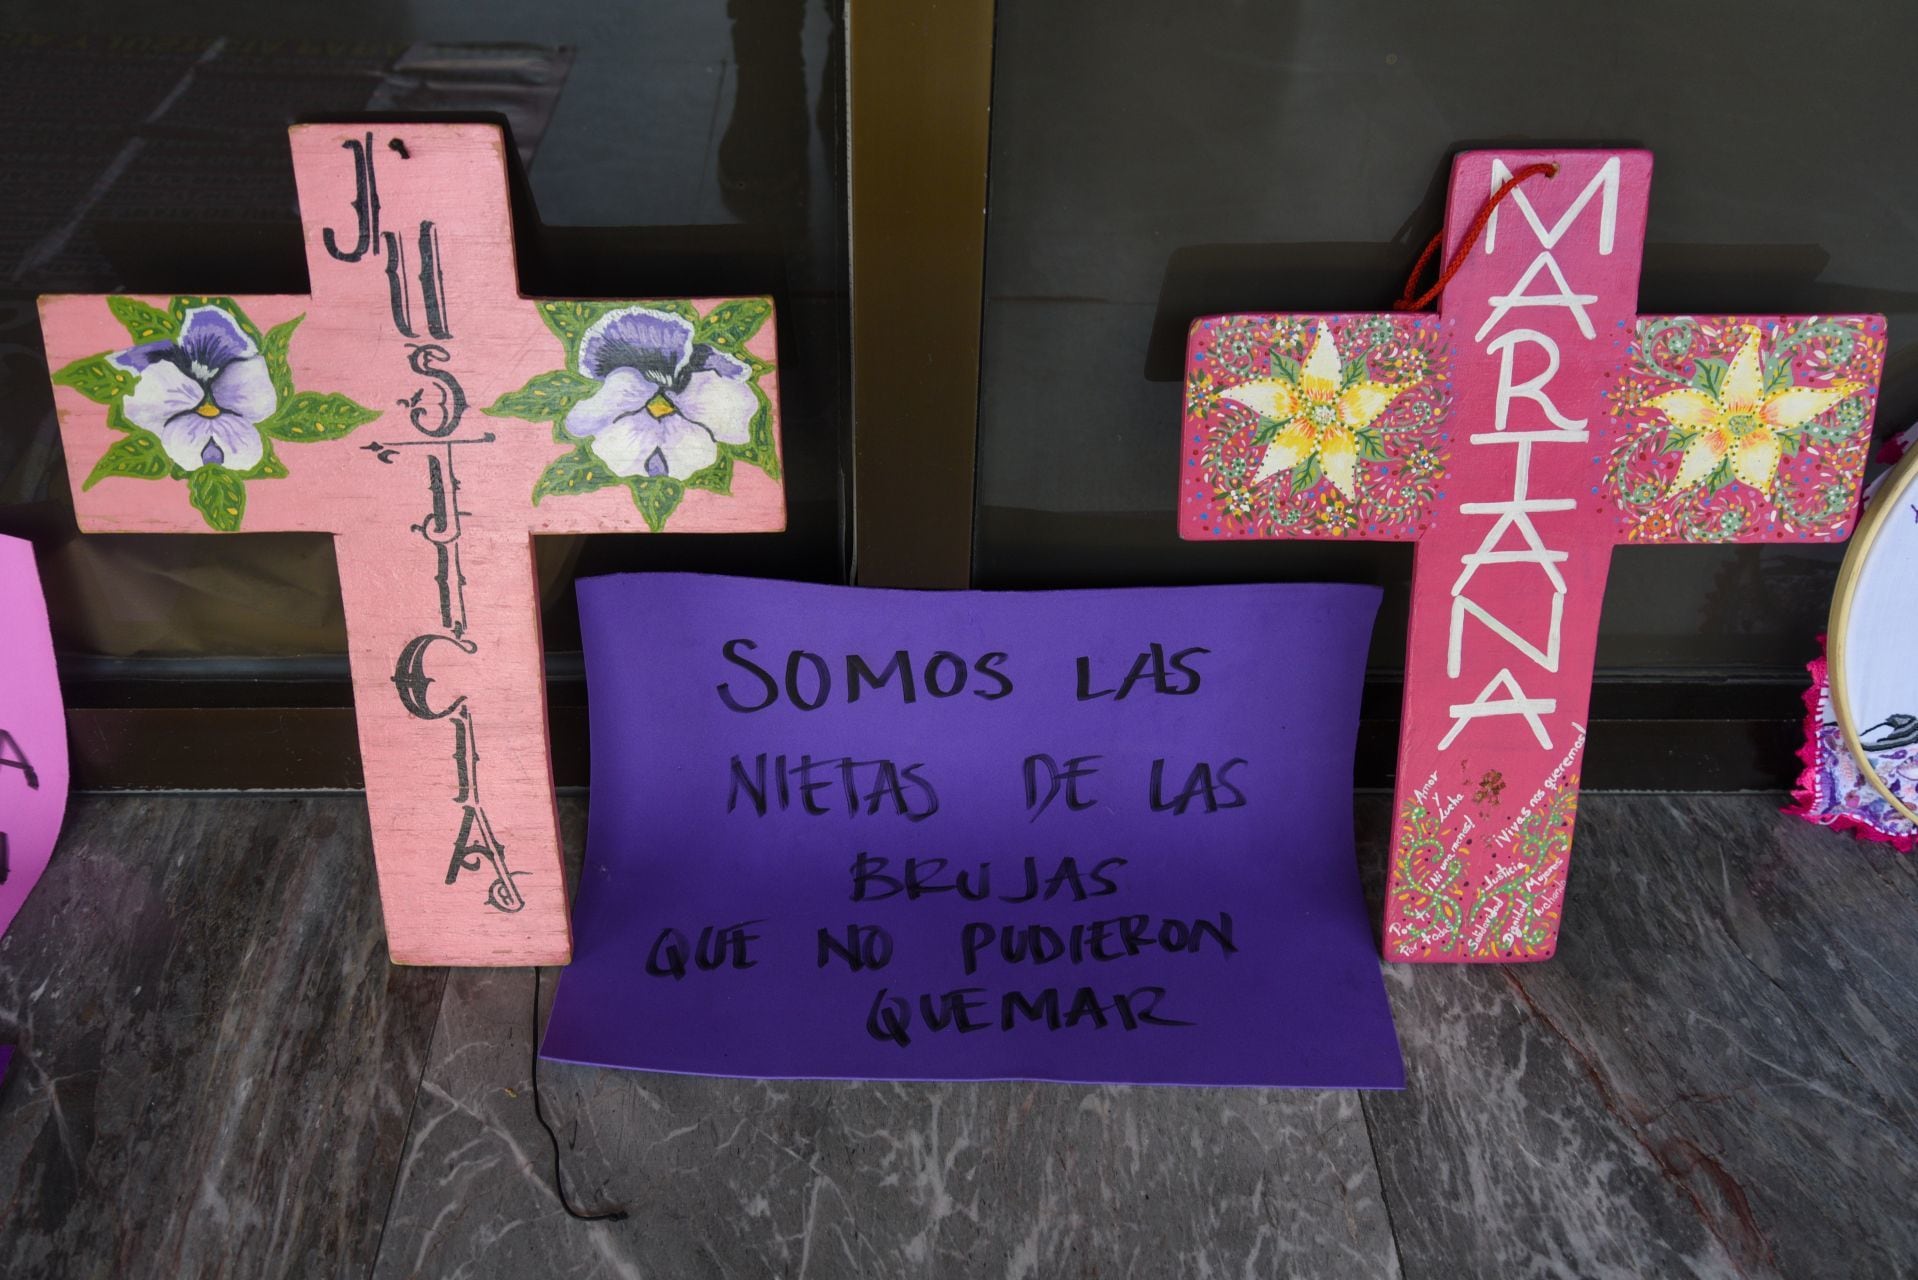 JUSTICIA
SOMOS LAS
NIETAS DE LAS
BRUJAS
QUE NO PUDIERON
QUEMAR
MARIANA
Amor
y
lucha
¡Ni una menos!
¡Vivas nos queremos!
Por ti
Por todas
Justicia
Solidaridad
Dignidad
Mujeres
luchando
A